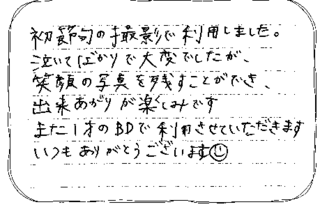 初節句の撮影で利用しました。
泣いてばかりで大変でしたが、
笑顔の写真を残すことができ、
出来あがりが楽しみです
また1才のBDで利用させていただきます
いつもありがとうございます☺